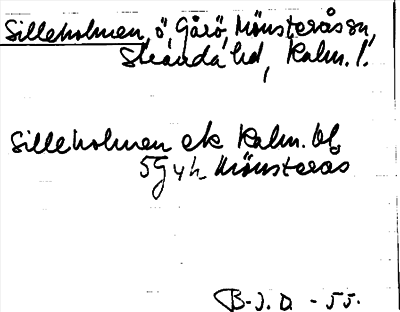 Silleholmen, ö, Gårö, Mönsterås sn,
Stranda hd, Kalm. l.
Silleholmen ek Kalm. bl.
5G y h Mönsterås
B-J. D. - 55.